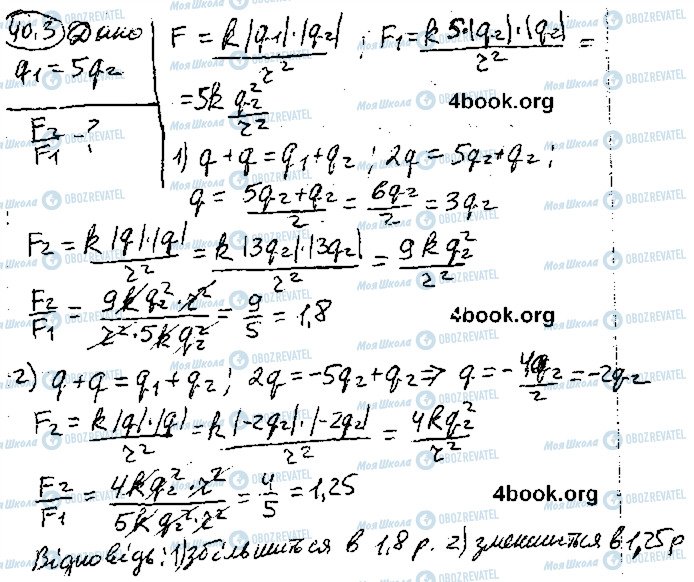 40.3) Дано
q1 = 5q2
F2/F1 - ?
F = k|q1|·|q2|/r² ; F1 = k 5·|q2|·|q2|/r² =
= 5k q2²/r²
4book.org
1) q + q = q1 + q2 ; 2q = 5q2 + q2 ;
q = (5q2 + q2)/2 = 6q2/2 = 3q2
F2 = k|q|·|q|/r² = k|3q2|·|3q2|/r² = 9kq2²/r²
F2/F1 = 9kq2²·r²/r²·5kq2² = 9/5 = 1,8
4book.org
2) q + q = q1 + q2 ; 2q = -5q2 + q2 => q = -4q2/2 = -2q2
F2 = k|q|·|q|/r² = k|-2q2|·|-2q2|/r² = 4kq2²/r²
F2/F1 = 4kq2²·r²/5kq2²·r² = 4/5 = 1,25
4book.org
Відповідь: 1) збільшиться в 1,8 р. 2) зменшиться в 1,25 р
Моя Школа OBOZREVATEL